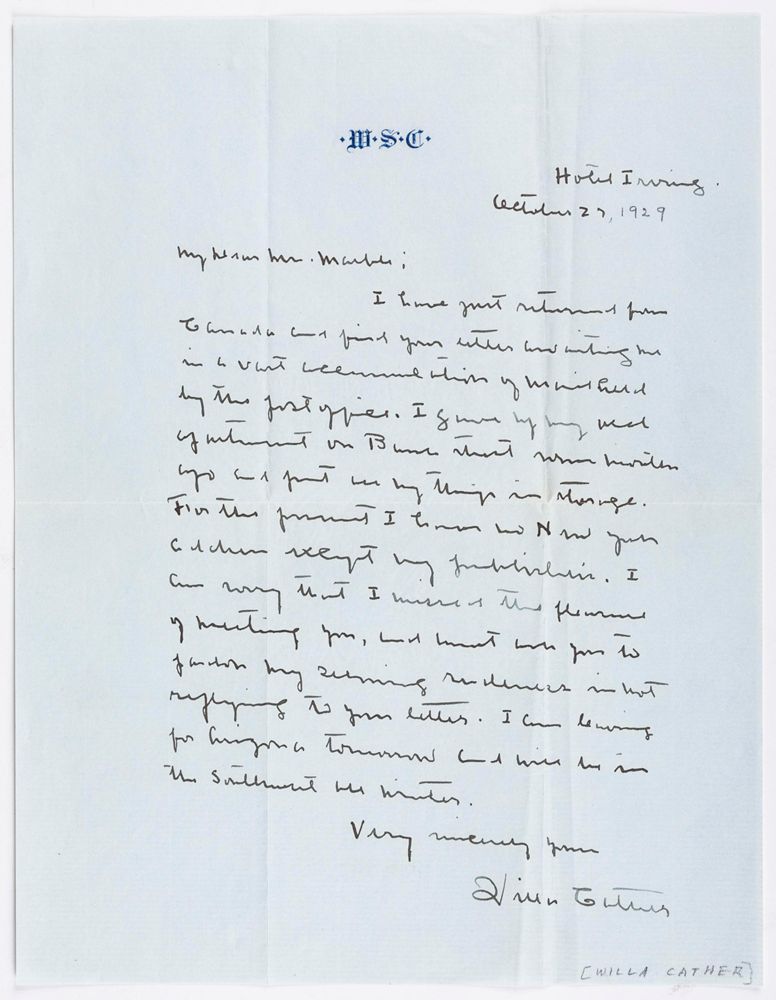 ·W·S·C·
Hotel Irving.
October 27, 1929
My dear Mr. Marble;
I have just returned from
Canada and find your letter awaiting me
in a vast accumulation of mail held
by the post office. I gave up my
apartment on Bank street some months
ago and put all my things in storage.
For the present I have no New York
address except my publishers. I
am sorry that I missed the pleasure
of meeting you, and must ask you to
pardon my seeming rudeness in not
replying to your letter. I am leaving
for Arizona tomorrow and will be in
the Southwest all winter.
Very sincerely yours
Willa Cather
[WILLA CATHER]